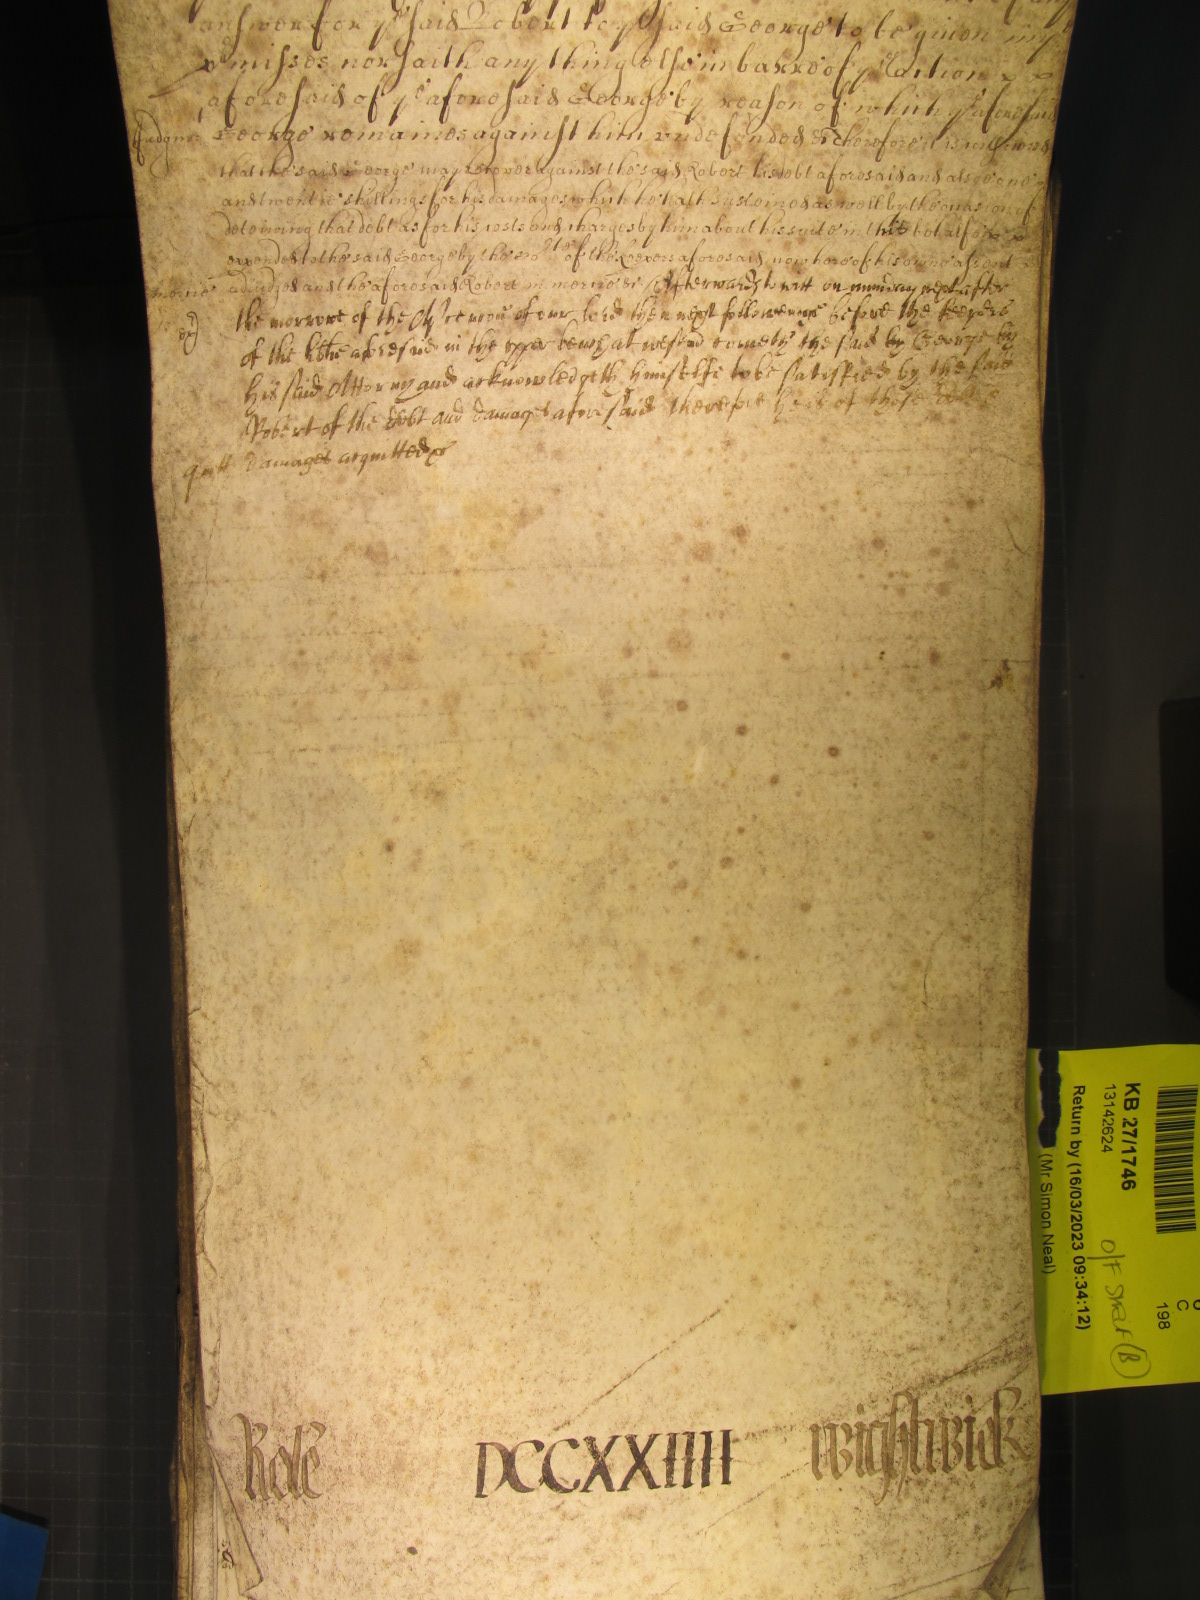 answer for yͤ said Robert to yͤ said George to be given
misses nor saith any thing else in barre of yͤ action
aforesaid of yͤ aforesaid George by reason of which yͤ aforesaid
Judgmt George remaines against him undefended &c Therefore it is
that the said George may recover against the said Robert his debt aforesaid and also one
and twentie shillings for his damages which he hath susteined as well by the occasion of
deteining that debt as for his costs and charges by him about his suite in this behalfe
expended to the said George by the of the Keepers aforesaid now here of his owne assent
mercie adiudged and the aforesaid Robert in mercie &c Afterwards to witt on munday next after
the morrowe of the of our lord then next followeinge before the keepers
of the aforesaid in the upper bench at cometh the said George by
his said Attorny and acknowledgeth himselfe to be satisfied by the said
Robert of the debt and damages aforesaid therefore hee is of those
damages acquitted &c
Role DCCXXIIII Wightwick
KB 27/1746
13142624
Return by (16/03/2023 09:34:12)
(Mr Simon Neal)
C
198